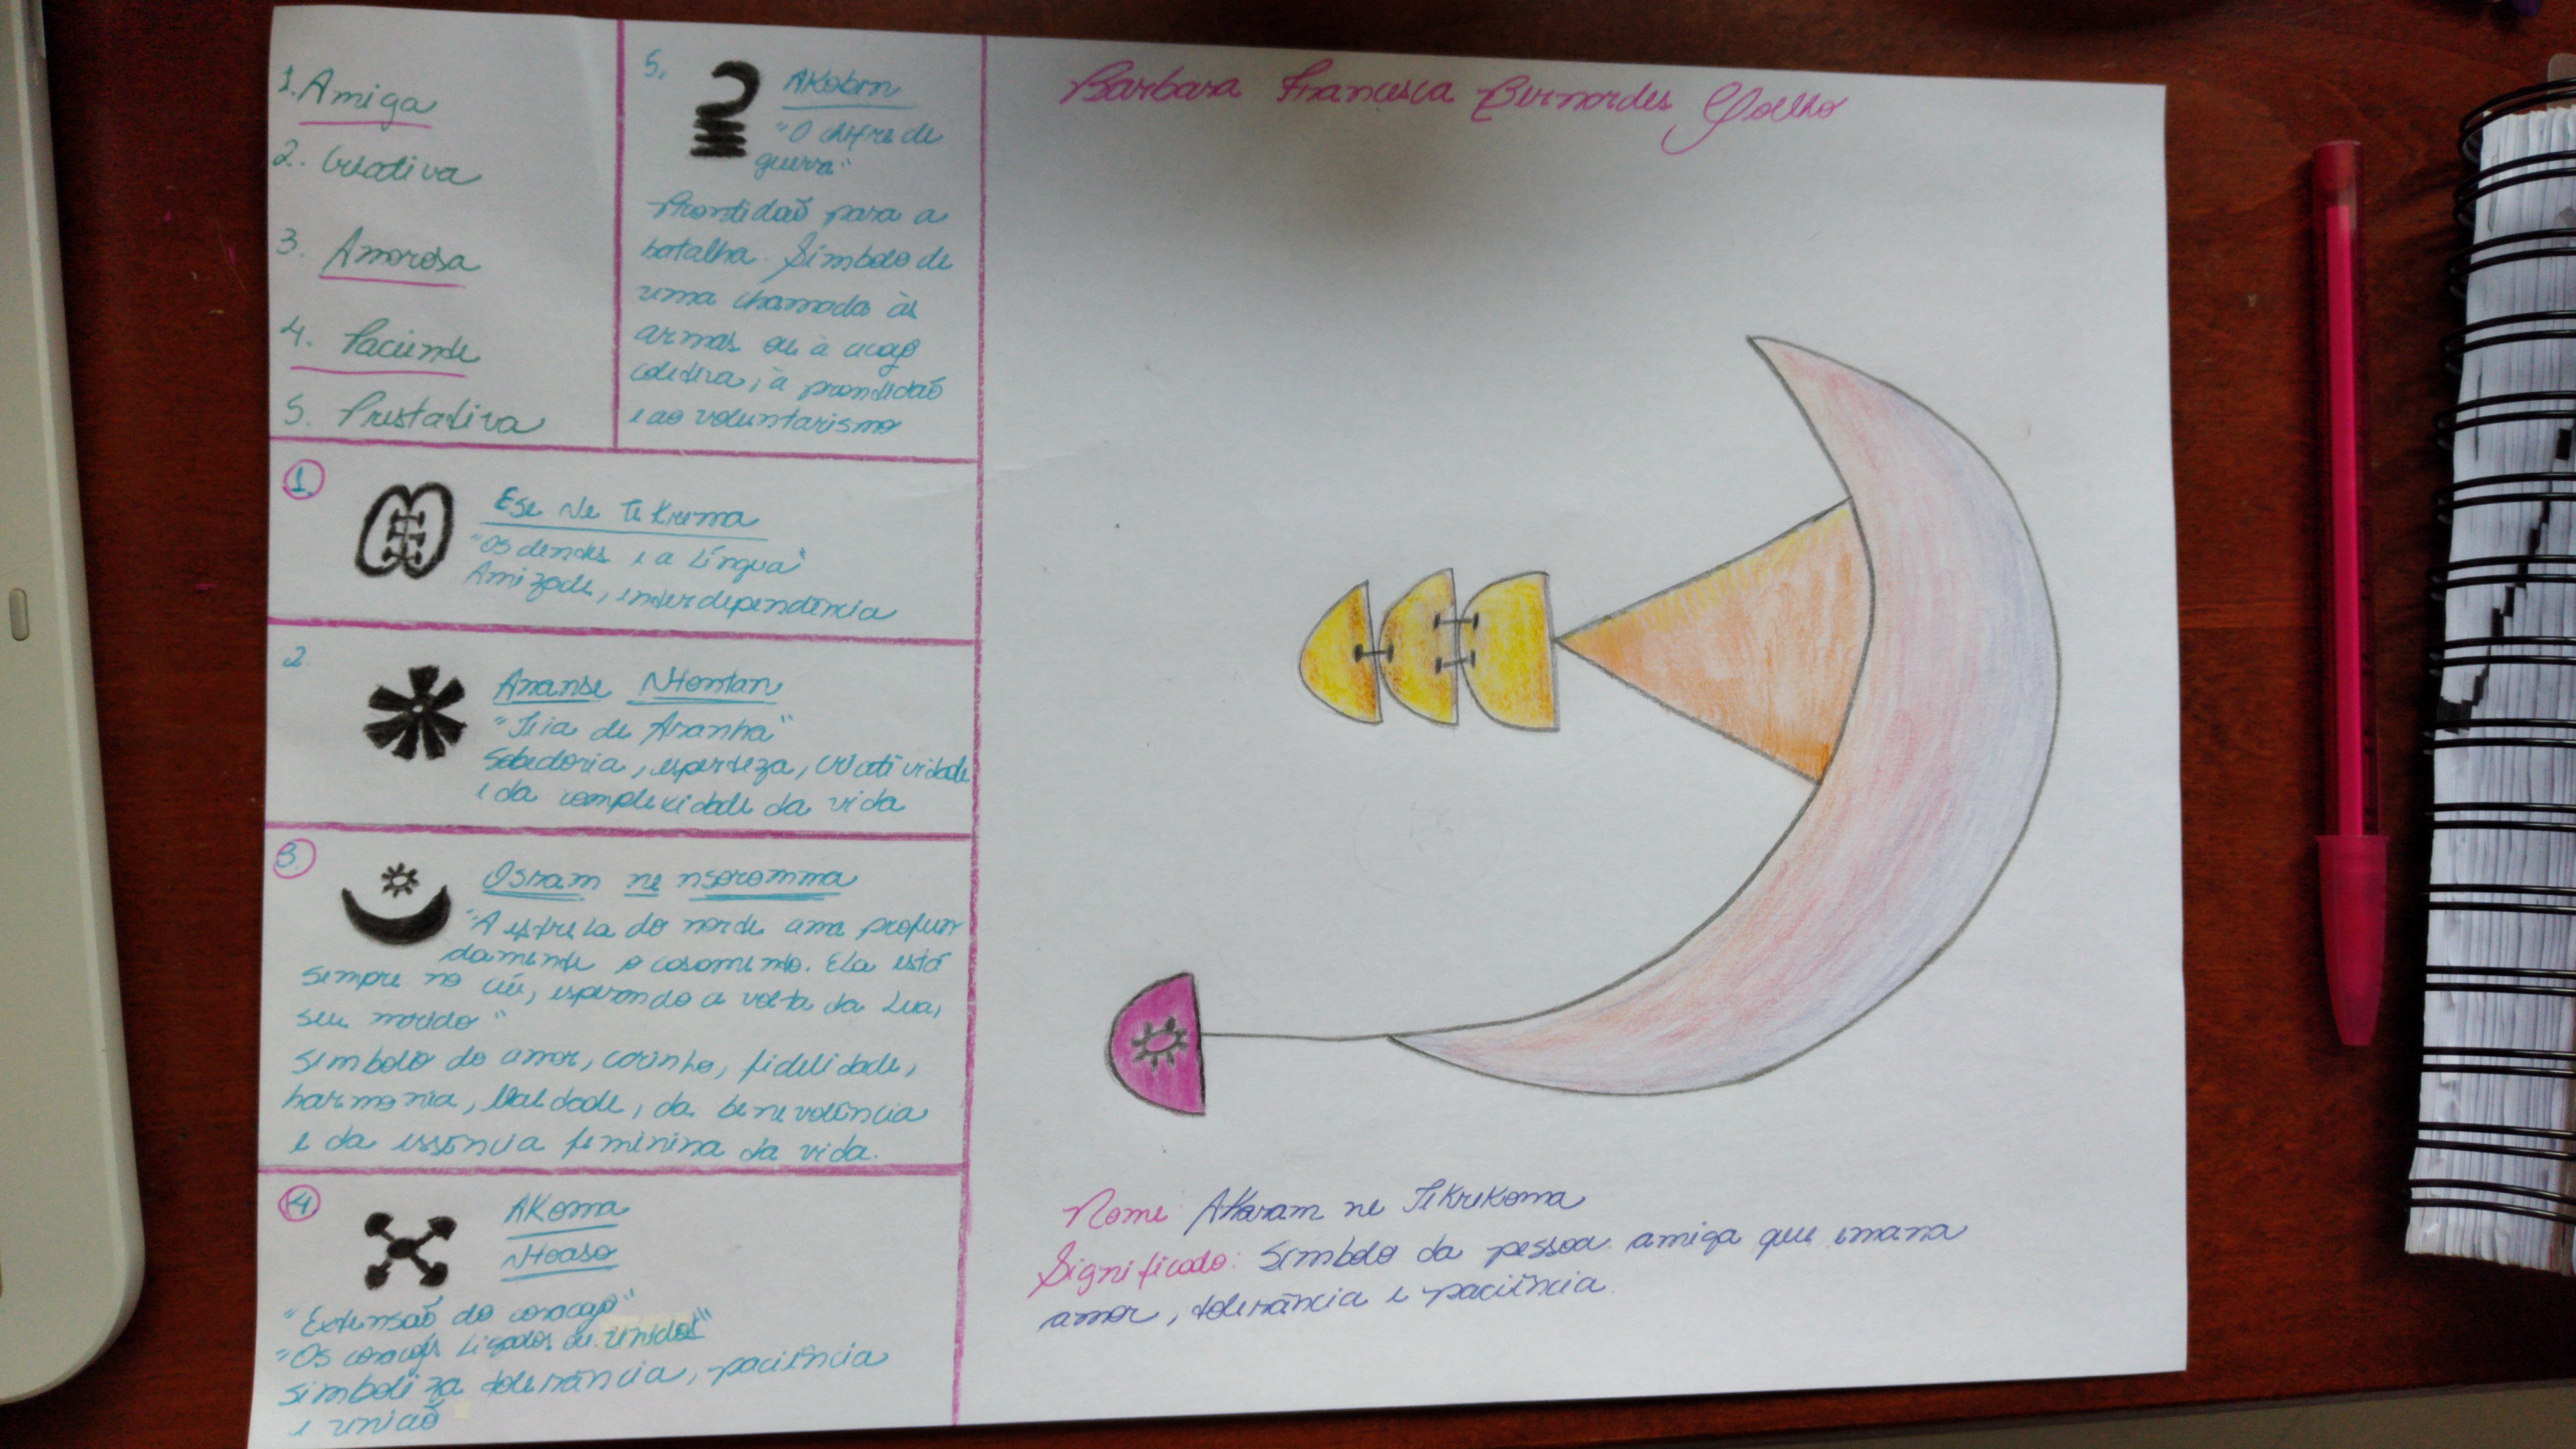 1. Amiga
2. Creativa
3. Amorosa
4. Paciente
5. Prestativa
5.
AKobɛn
"O chifre de
guerra"
Prontidaõ para a
batalha. Símbolo de
uma chamada às
armas ou à acaço
coletiva, à prontidaõ
e ao voluntarismo
1.
Ese Ne TeKrema
"Os dentes e a Língua"
Amizade, interdependência
2.
Ananse Ntontan
"Teia de Aranha"
Sabedoria, esperteza, criatividade
e da complexidade da vida
3.
Osram ne nsoromma
"A estrela do norte ama profun
damente o casamento. Ela está
sempre no céu, esperando a volta da Lua,
seu marido"
Símbolo do amor, carinho, fidelidade,
harmonia, lealdade, da benevolência
e da essência feminina da vida.
4
AKoma
Ntoaso
"Extensaõ do coracaço"
"Os Ligados ou unidos"
simboliza tolerância, paciência
e uniaõ
Barbara Francesca Bernardes Coelho
Nome AKoram ne TeKreKoma
Significado: Símbolo da pessoa amiga que emana
amor, tolerância e paciência.